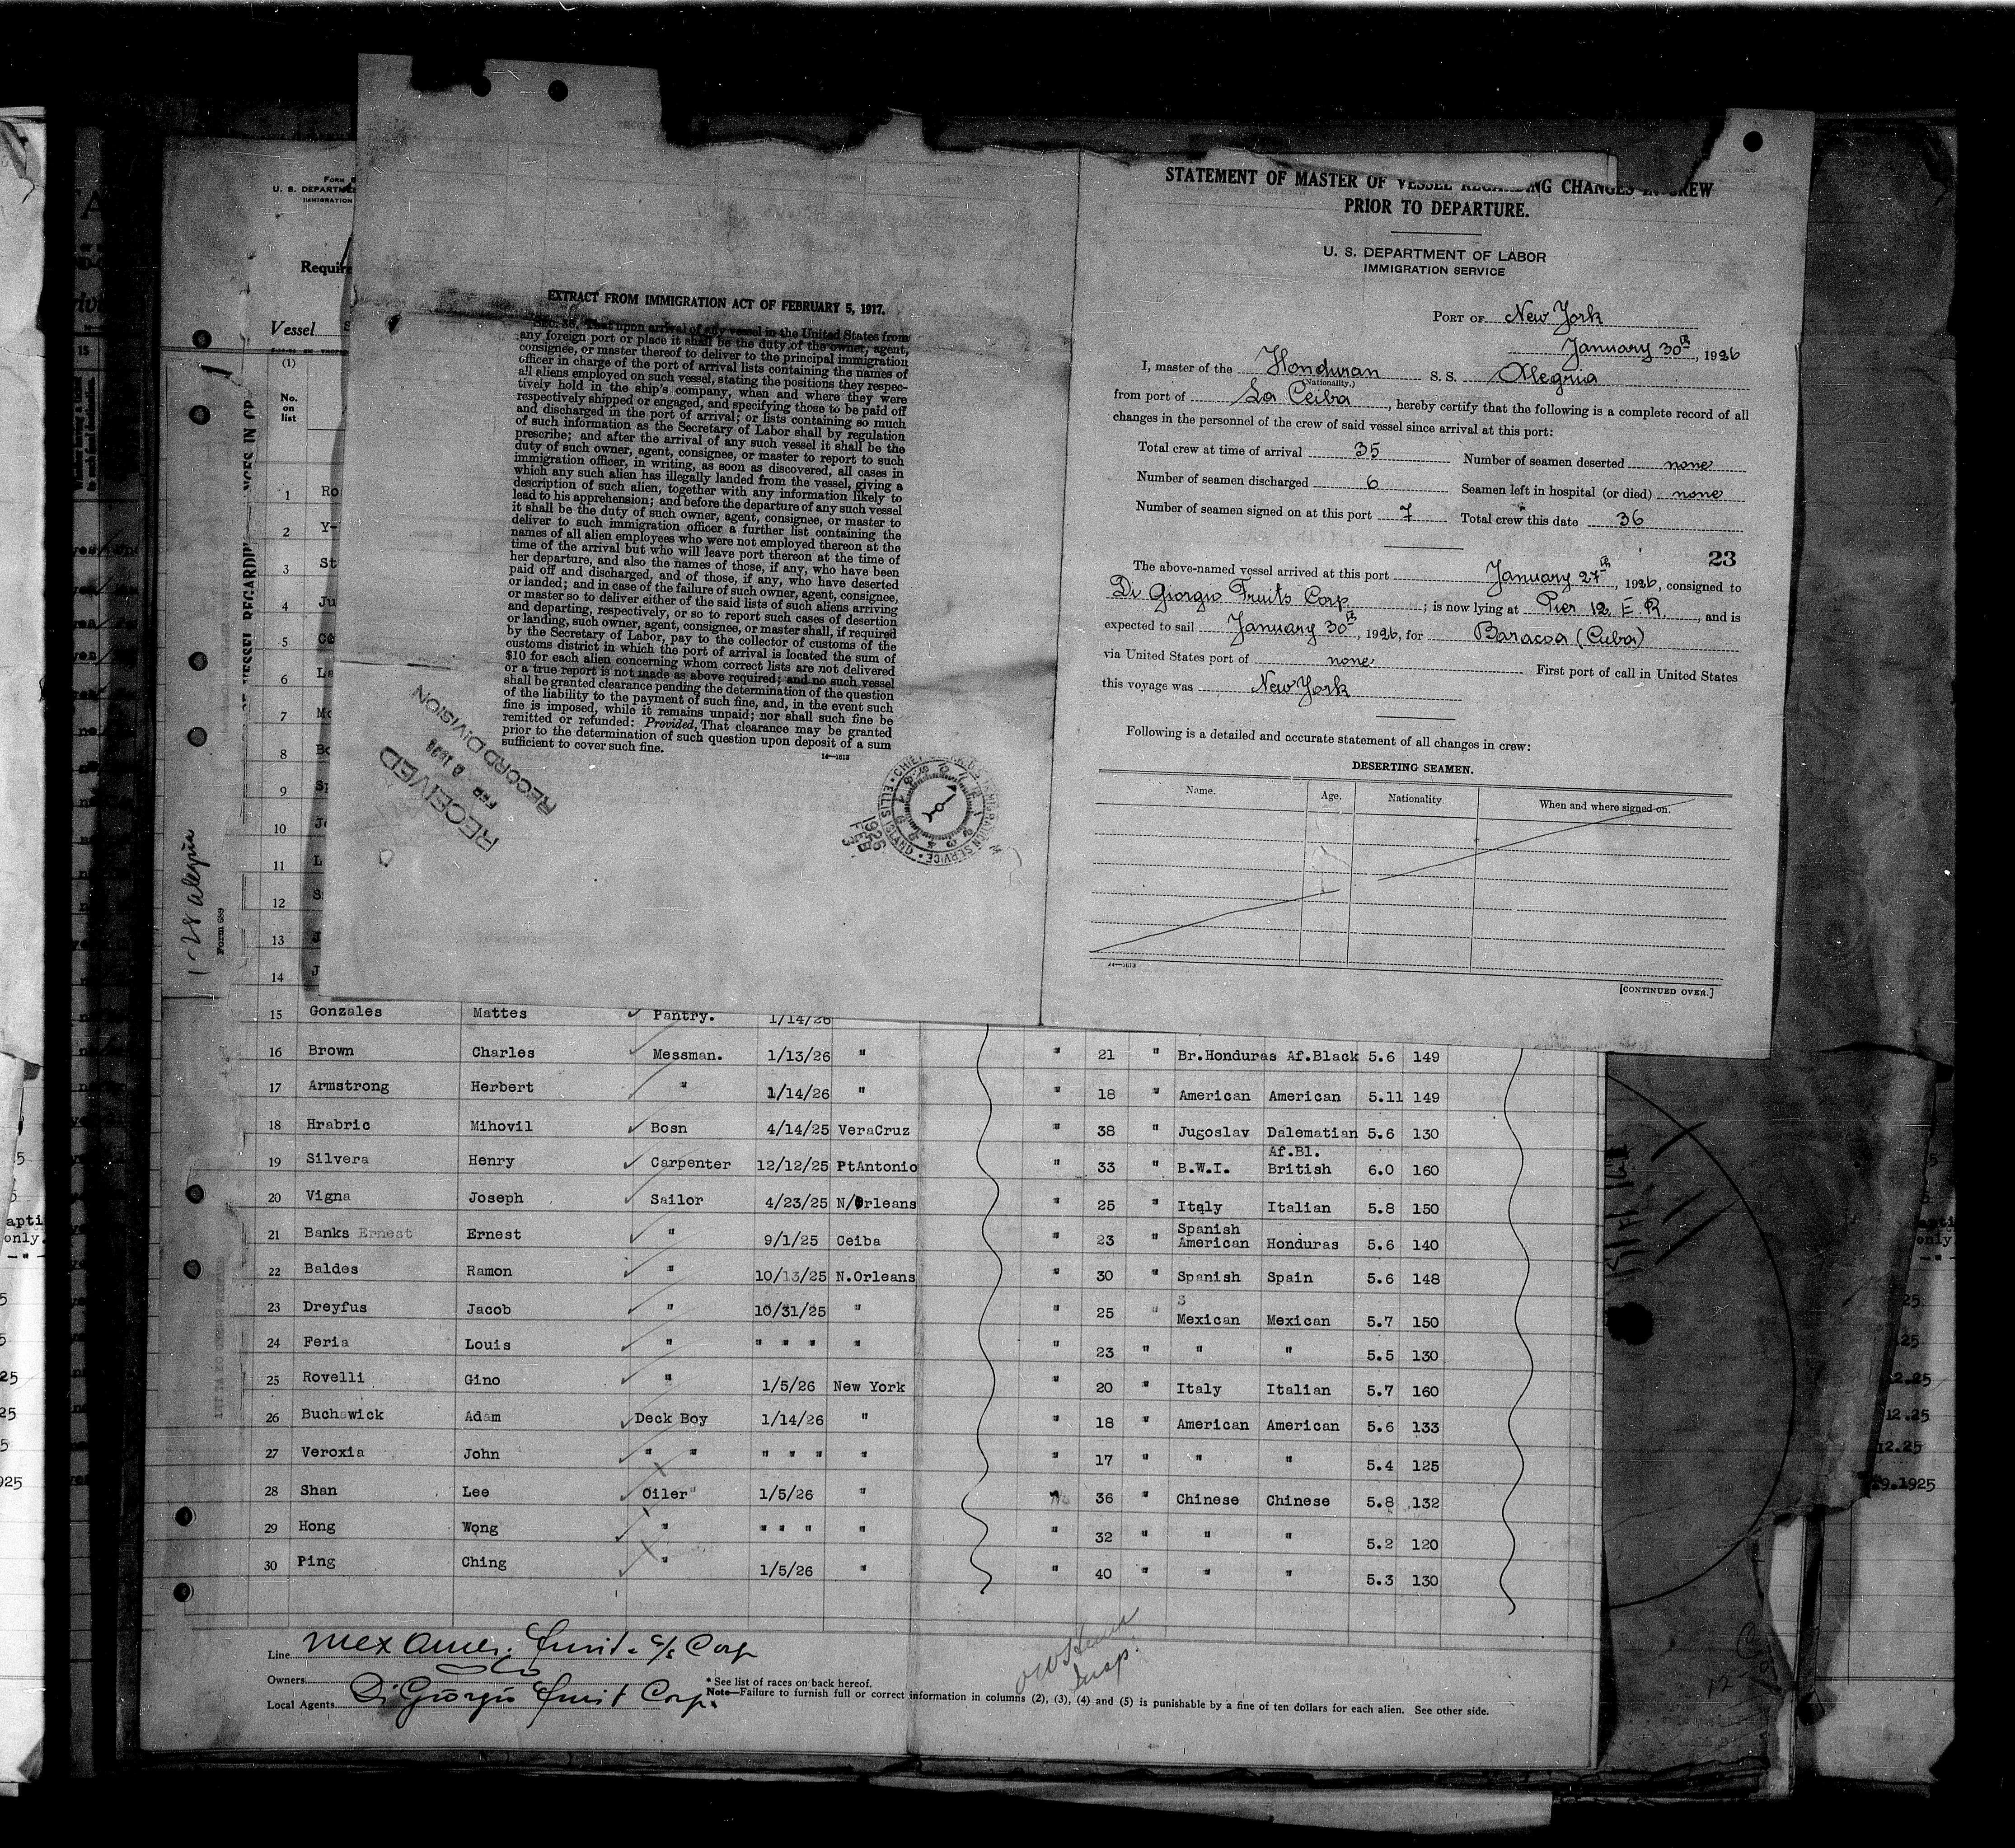 STATEMENT OF MASTER OF VESSEL REGARDING CHANGES IN CREW
PRIOR TO DEPARTURE.
U. S. DEPARTMENT OF LABOR
IMMIGRATION SERVICE
PORT OF New York
January 30th, 1926
I, master of the Honduran S. S. Alegria
(Nationality.)
from port of La Ceiba, hereby certify that the following is a complete record of all
changes in the personnel of the crew of said vessel since arrival at this port:
Total crew at time of arrival 35 Number of seamen deserted none
Number of seamen discharged 6 Seamen left in hospital (or died) none
Number of seamen signed on at this port 7 Total crew this date 36
23
The above-named vessel arrived at this port January 27th, 1926, consigned to
Di Giorgio Fruits Corp; is now lying at Pier 12 E. R., and is
expected to sail January 30th, 1926, for Baracoa (Cuba)
via United States port of none First port of call in United States
this voyage was New York
Following is a detailed and accurate statement of all changes in crew:
DESERTING SEAMEN.
Name. Age. Nationality. When and where signed on.
14—1613
[CONTINUED OVER.]
EXTRACT FROM IMMIGRATION ACT OF FEBRUARY 5, 1917.
SEC. 36. That upon arrival of any vessel in the United States from
any foreign port or place it shall be the duty of the owner, agent,
consignee, or master thereof to deliver to the principal immigration
officer in charge of the port of arrival lists containing the names of
all aliens employed on such vessel, stating the positions they respec-
tively hold in the ship's company, when and where they were
respectively shipped or engaged, and specifying those to be paid off
and discharged in the port of arrival; or lists containing so much
of such information as the Secretary of Labor shall by regulation
prescribe; and after the arrival of any such vessel it shall be the
duty of such owner, agent, consignee, or master to report to such
immigration officer, in writing, as soon as discovered, all cases in
which any such alien has illegally landed from the vessel, giving a
description of such alien, together with any information likely to
lead to his apprehension; and before the departure of any such vessel
it shall be the duty of such owner, agent, consignee, or master to
deliver to such immigration officer a further list containing the
names of all alien employees who were not employed thereon at the
time of the arrival but who will leave port thereon at the time of
her departure, and also the names of those, if any, who have been
paid off and discharged, and of those, if any, who have deserted
or landed; and in case of the failure of such owner, agent, consignee,
or master so to deliver either of the said lists of such aliens arriving
and departing, respectively, or so to report such cases of desertion
or landing, such owner, agent, consignee, or master shall, if required
by the Secretary of Labor, pay to the collector of customs of the
customs district in which the port of arrival is located the sum of
$10 for each alien concerning whom correct lists are not delivered
or a true report is not made as above required; and no such vessel
shall be granted clearance pending the determination of the question
of the liability to the payment of such fine, and, in the event such
fine is imposed, while it remains unpaid; nor shall such fine be
remitted or refunded: Provided, That clearance may be granted
prior to the determination of such question upon deposit of a sum
sufficient to cover such fine.
14—1613
RECEIVED
FEB 1926
RECORD DIVISION
IMMIGRATION SERVICE ELLIS ISLAND
1926
FEB
3
U. S. DEPARTME
IMMIGRATION
Require
Vessel
(1)
No.
on
list
1 Ro
2 Y-
3 St
4 Ju
5
6 La
7 Mc
8 Bo
9 Sp
10 Jo
11 L
12 S
13
14 J
1-28 alegria
Form 689
15 Gonzales Mattes Pantry. 1/14/26
16 Brown Charles Messman. 1/13/26 " " 21 " Br.Honduras Af.Black 5.6 149
17 Armstrong Herbert " 1/14/26 " " 18 " American American 5.11 149
18 Hrabric Mihovil Bosn 4/14/25 VeraCruz " 38 " Jugoslav Dalematian 5.6 130
19 Silvera Henry Carpenter 12/12/25 PtAntonio " 33 " B.W.I. Af.Bl. British 6.0 160
20 Vigna Joseph Sailor 4/23/25 N/Orleans " 25 " Italy Italian 5.8 150
21 Banks Ernest Ernest " 9/1/25 Ceiba " 23 " Spanish American Honduras 5.6 140
22 Baldes Ramon " 10/13/25 N.Orleans " 30 " Spanish Spain 5.6 148
23 Dreyfus Jacob " 10/31/25 " " 25 " Mexican Mexican 5.7 150
24 Feria Louis " " " " " " 23 " " " 5.5 130
25 Rovelli Gino " 1/5/26 New York " 20 " Italy Italian 5.7 160
26 Buchswick Adam Deck Boy 1/14/26 " " 18 " American American 5.6 133
27 Veroxia John " " " " " " " 17 " " " 5.4 125
28 Shan Lee Oiler" 1/5/26 " " 36 " Chinese Chinese 5.8 132
29 Hong Wong " " " " " " 32 " " " 5.2 120
30 Ping Ching " 1/5/26 " " 40 " " " 5.3 130
Line Mex Amer. Fruit & S/S Corp
Owners
Local Agents Di Giorgio Fruit Corp.
* See list of races on back hereof.
Note—Failure to furnish full or correct information in columns (2), (3), (4) and (5) is punishable by a fine of ten dollars for each alien. See other side.
Insp.